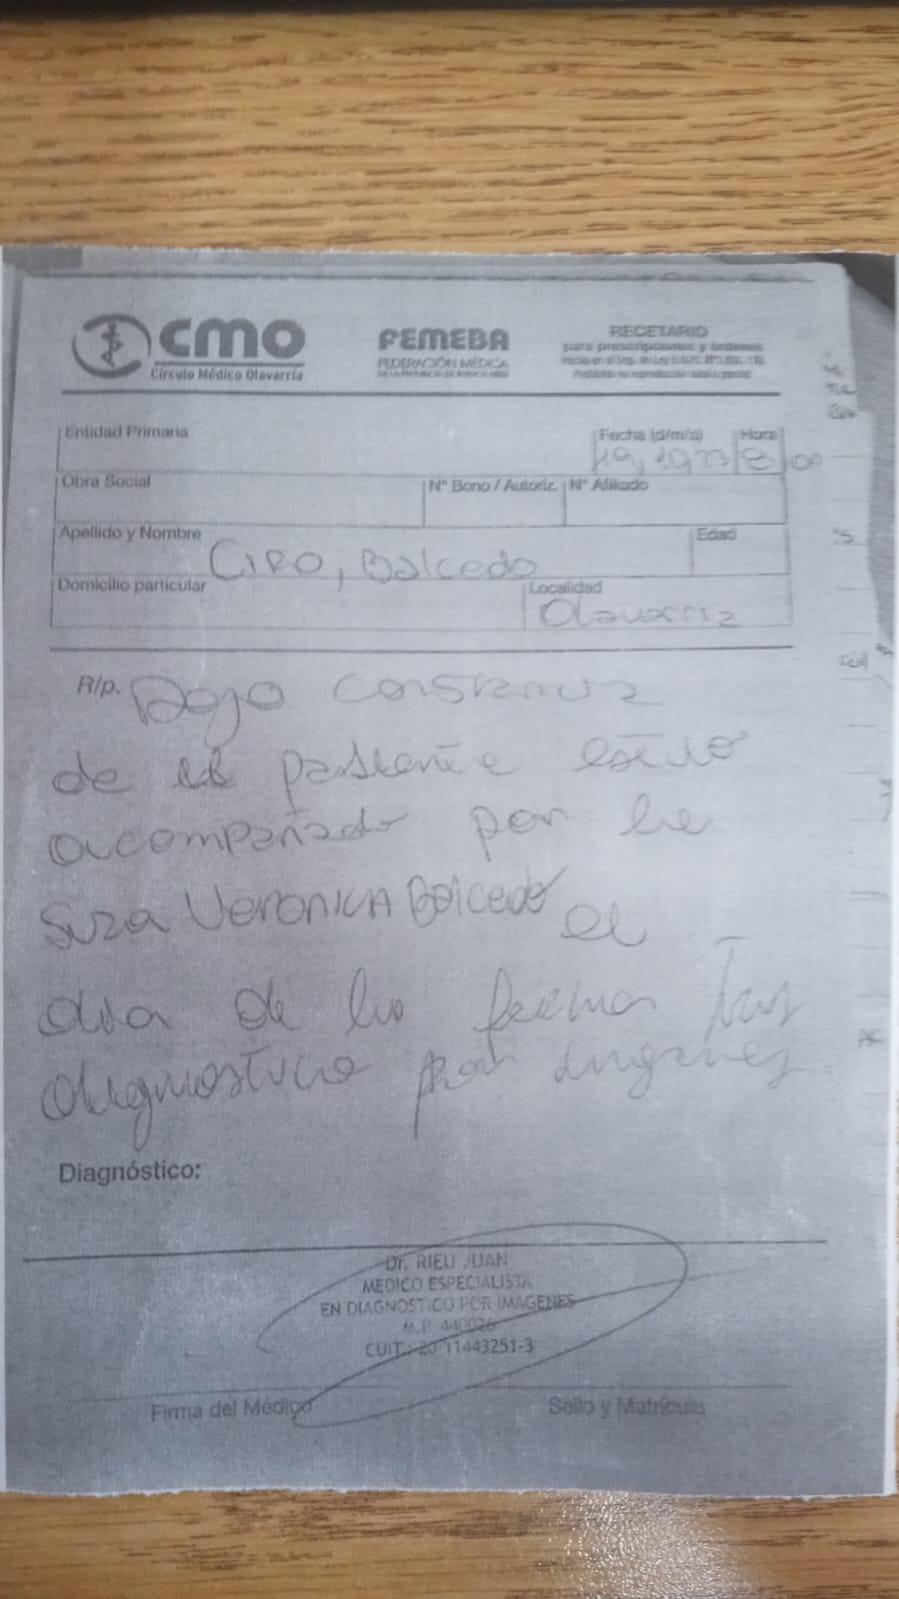 CMO
Círculo Médico Olavarría
FEMEBA
FEDERACIÓN MÉDICA
DE LA PROVINCIA DE BUENOS AIRES
RECETARIO
para prescripciones y órdenes
Entidad Primaria
Fecha (d/m/a)
Hora
Obra Social
N° Bono / Autoriz.
N° Afiliado
Apellido y Nombre
Ciro, Balcedo
Edad
Domicilio particular
Localidad
Olavarria
R/p. Dejo constancia
de el pasiente estuvo
acompañado por la
Suza Veronica Balcedo el
dia de la fecha
diagnostico por imagenes.
Diagnóstico:
Dr. RIEU JUAN
MEDICO ESPECIALISTA
EN DIAGNOSTICO POR IMAGENES
M.P. 440026
CUIT.: 20-11443251-3
Firma del Médico
Sello y Matrícula